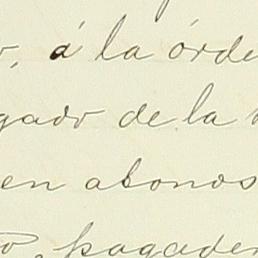 á la órde
gado de la
en abonos
pagader